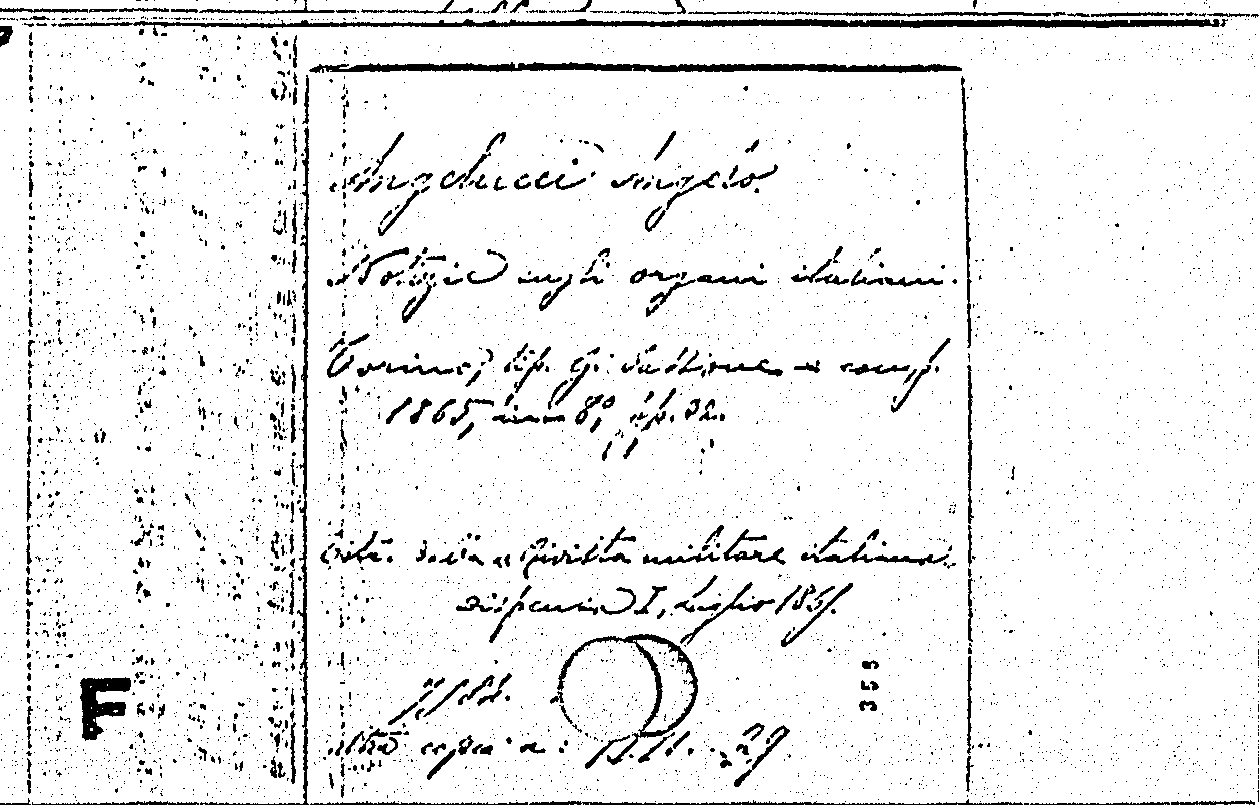 Angelucci Angelo.
Notizie sugli organi italiani.
Torino, tip. G. Cassone e comp.
1865, in 8º, pp. 32.
Estr. dalla "Rivista militare italiana.
dispensa I, luglio 1865.
altra copia a: 29
353
F